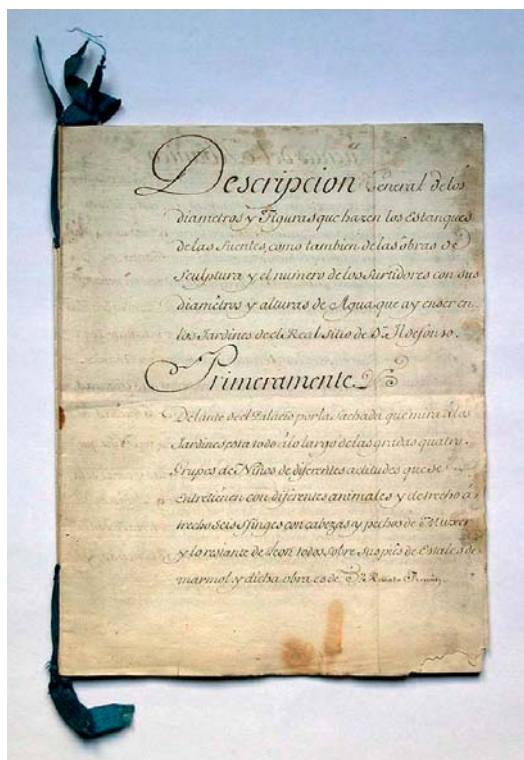 Descripcion General de los
diametros y Figuras que hazen los Estanques
de las fuentes, como tambien de las obras de
Sculptura y el numero de los Surtidores con sus
diamétros y alturas de Agua que ay en ser en
los Jardines de el Real sitio de Sn. Ildefonso.
Primeramente
Delante de el Palacio por la fachada que mira á los
Jardines esta todo álo largo de las gradas quatro
Grupos de Niños de diferentes actitudes que se
entretienen con diferentes animales y de trecho á
trecho seis sfinges con cabezas y pechos de Muxer
y lo restante de Leon todos sobre sus pies de Estales de
mármol y dicha obra es de